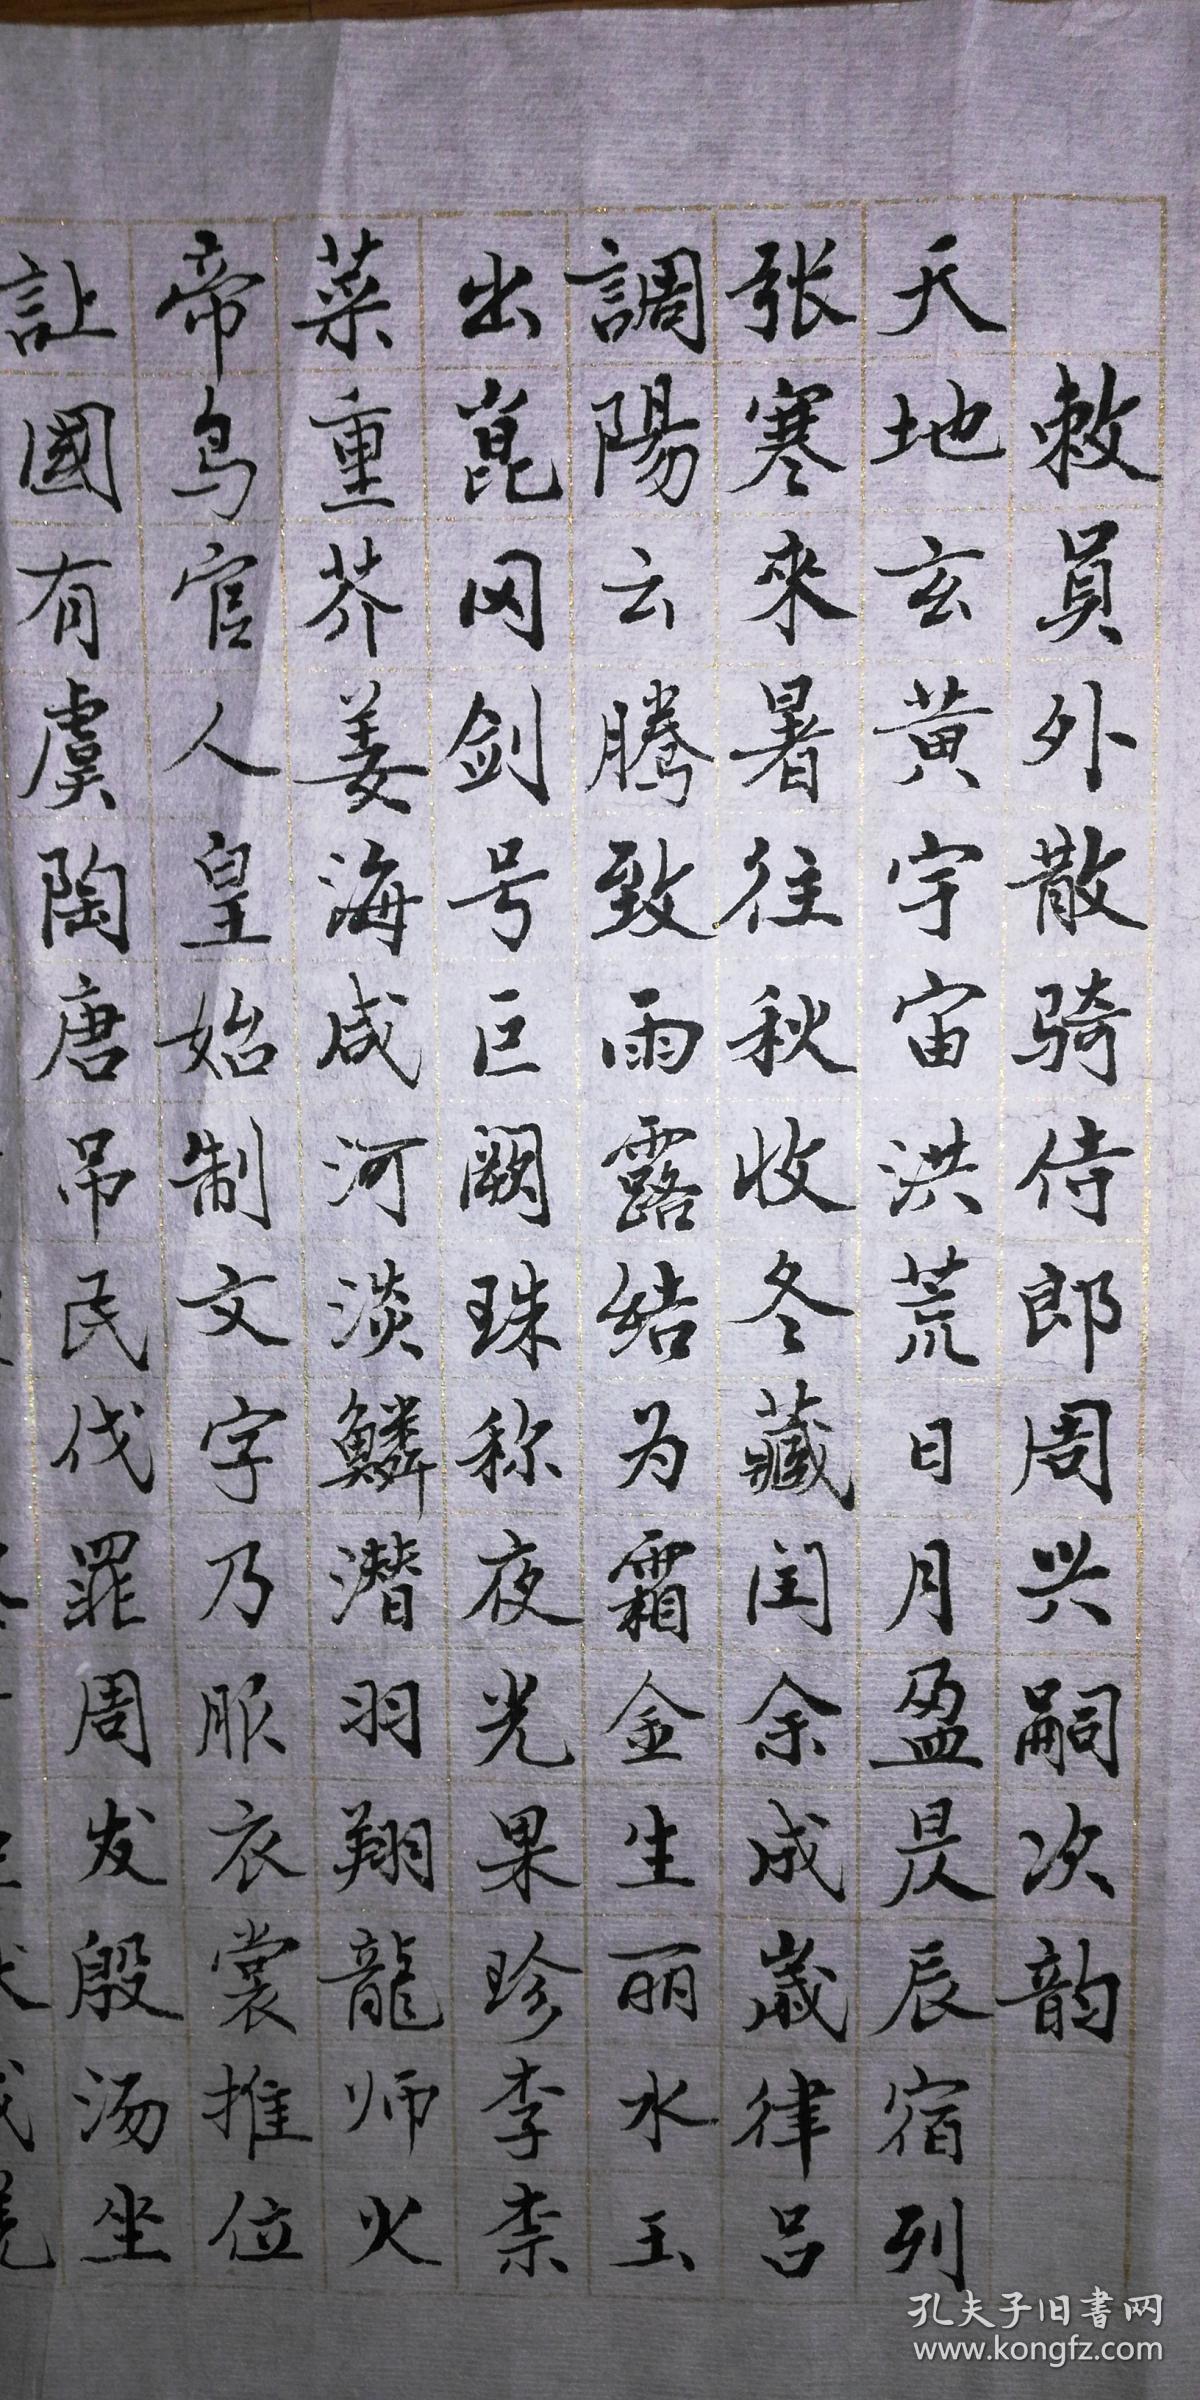 敕員外散骑侍郎周兴嗣次韵
天地玄黄宇宙洪荒日月盈昃辰宿列
张寒來暑往秋收冬藏闰余成歲律吕
調陽云腾致雨露结为霜金生丽水玉
出崑冈剑号巨阙珠称夜光果珍李柰
菜重芥姜海咸河淡鳞潜羽翔龍师火
帝鸟官人皇始制文字乃服衣裳推位
讓國有虞陶唐吊民伐罪周发殷汤坐
孔夫子旧書网
www.kongfz.com